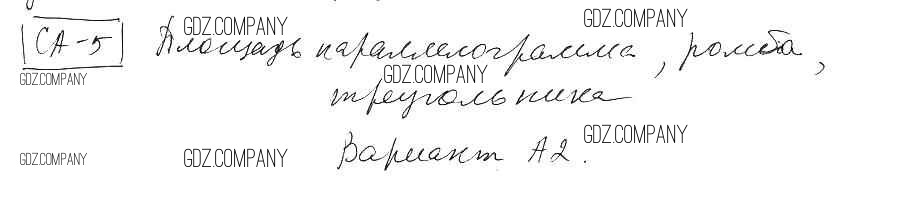 GDZ.COMPANY GDZ.COMPANY
СА-5 Площадь параллелограмма, ромба,
GDZ.COMPANY GDZ.COMPANY
треугольника
GDZ.COMPANY
Вариант А2.
GDZ.COMPANY GDZ.COMPANY